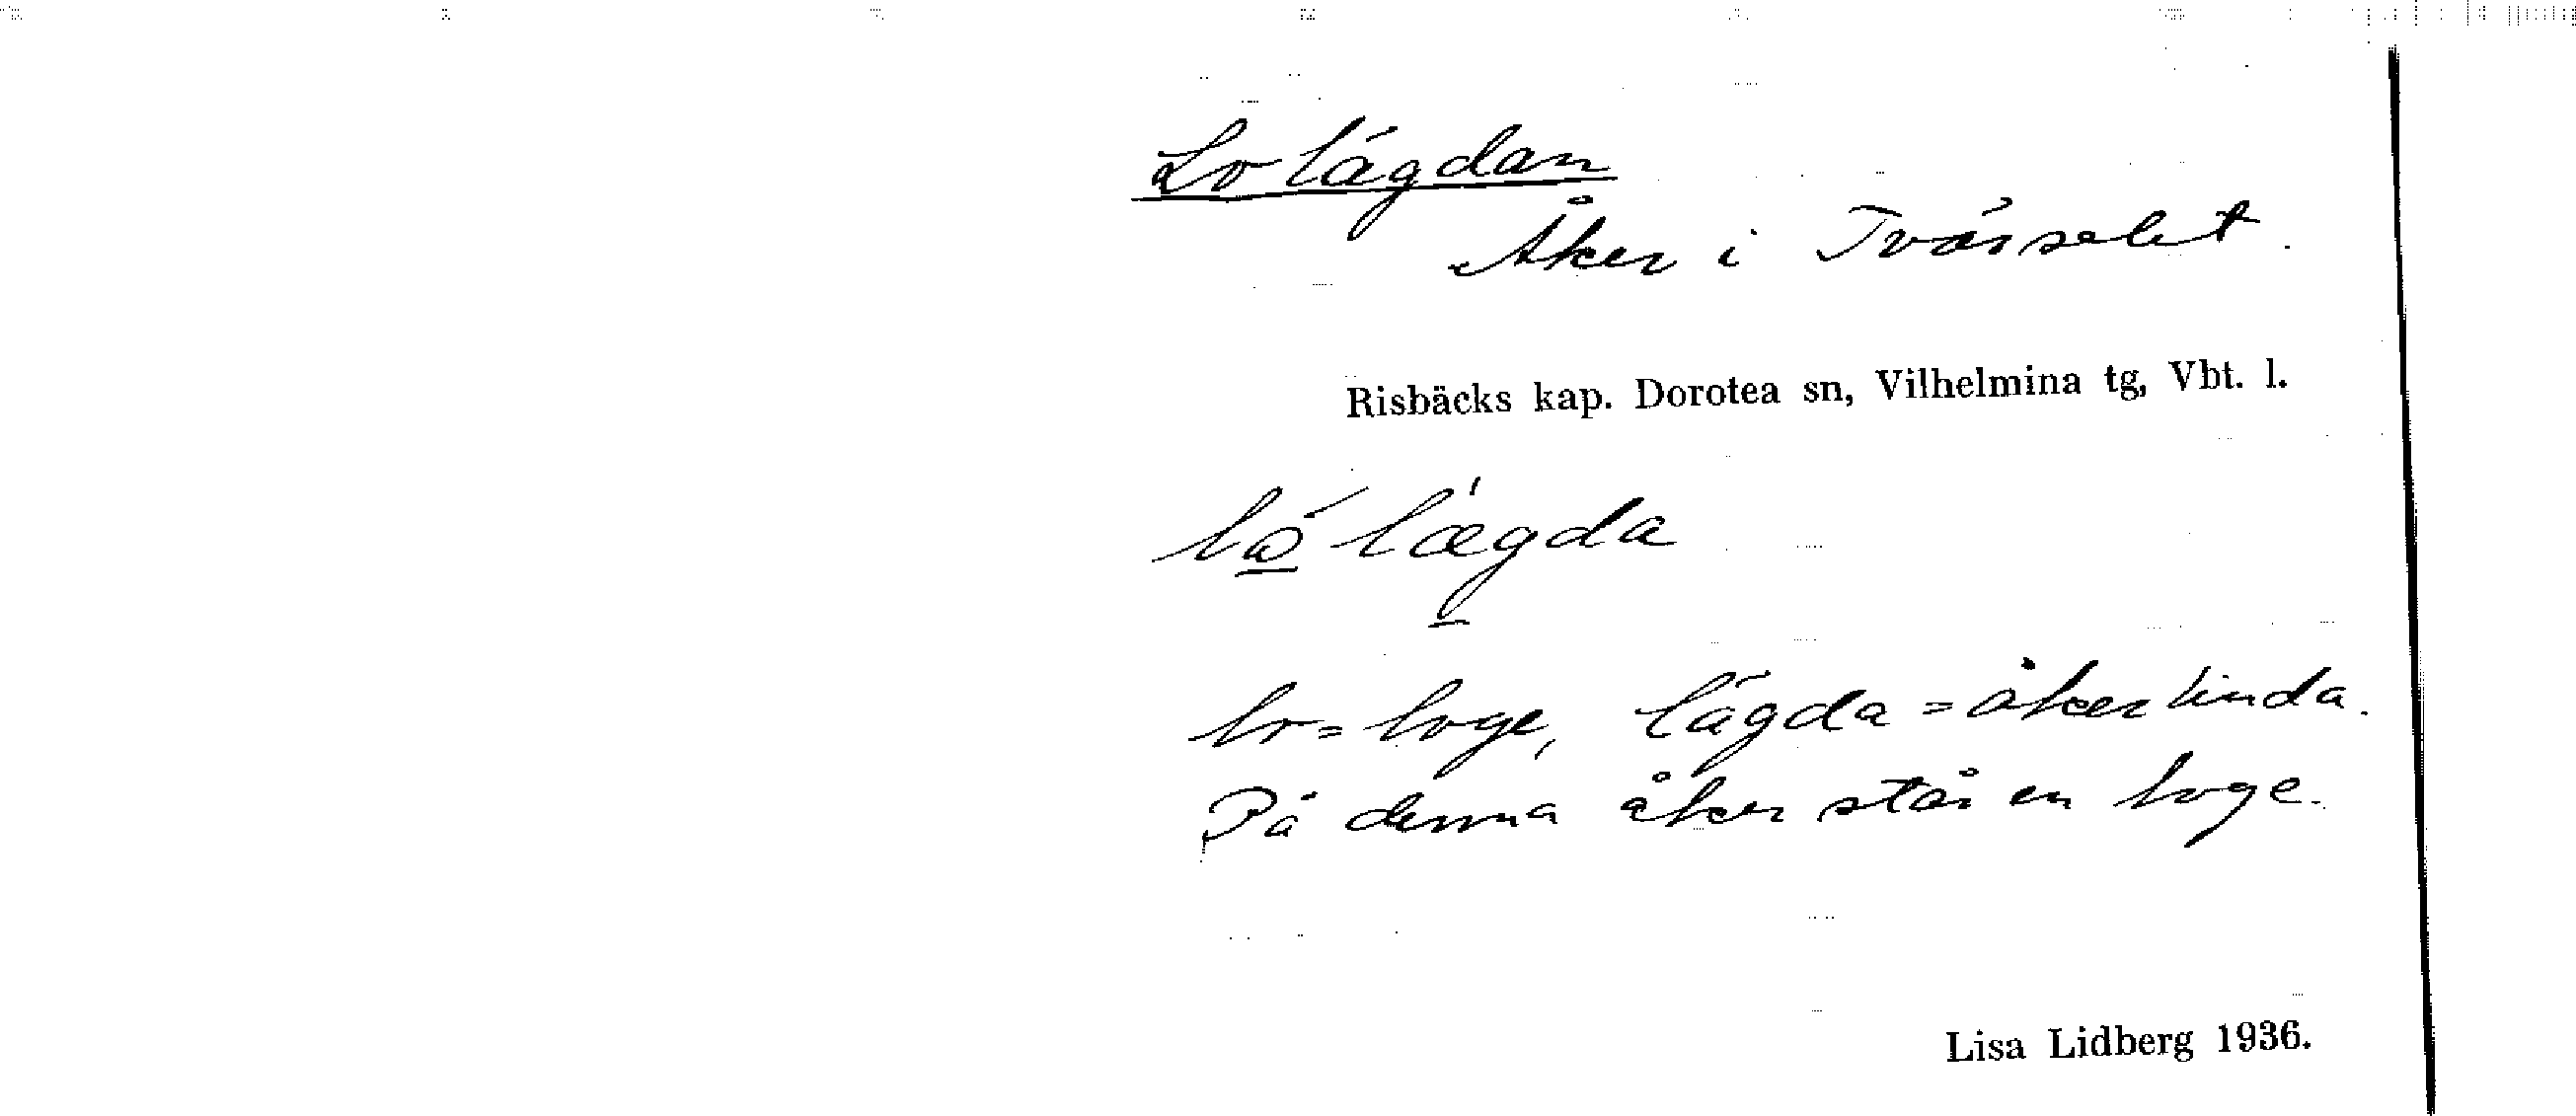 Lolägdan
Åker i Tvärselet.
Risbäcks kap. Dorotea sn, Vilhelmina tg, Vbt. l.
lægda
lo = loge, lägda = åkerlinda.
På denna åker står en loge.
Lisa Lidberg 1936.